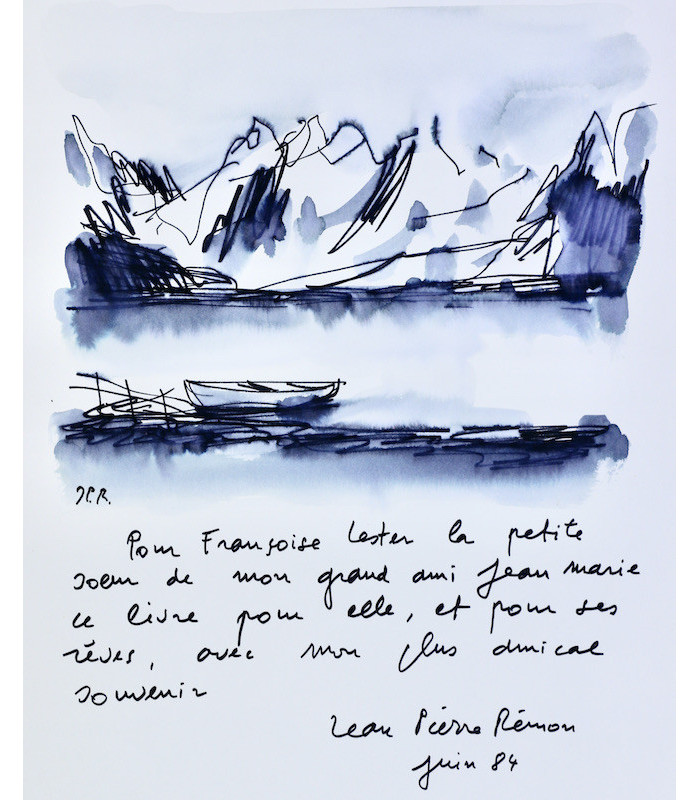 J.P.R.
Pour Françoise Lester la petite
soeur de mon grand ami Jean Marie
ce livre pour elle, et pour ses
rêves, avec mon plus amical
souvenir
Jean Pierre Rémon
juin 84